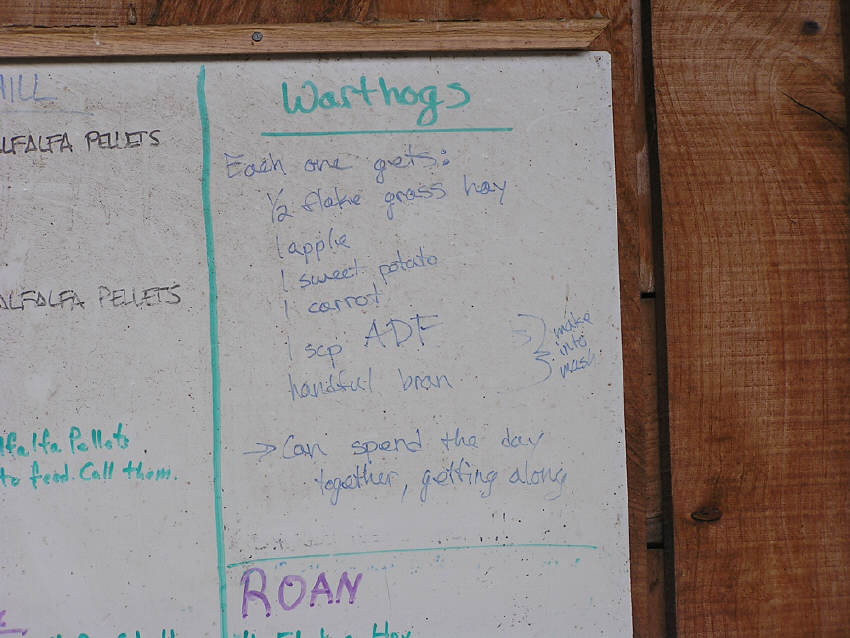 HILL
ALFALFA PELLETS
ALFALFA PELLETS
alfalfa Pellets
to feed. Call them.
Warthogs
Each one gets:
1/2 flake grass hay
1 apple
1 sweet potato
1 carrot
1 scp ADF
handful bran
make
into
mash
→ Can spend the day
together, getting along
ROAN
Hay